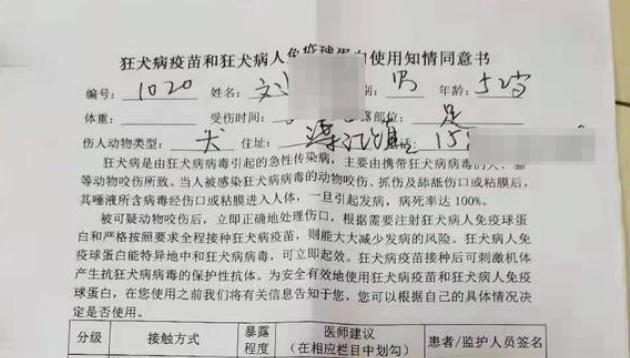 狂犬病疫苗和狂犬病人免疫球蛋白使用知情同意书
编号: 1020 姓名: 文 别: 男 年龄: 52岁
体重: 受伤时间: 露部位: 足
伤人动物类型: 犬 住址: 江镇 15
狂犬病是由狂犬病病毒引起的急性传染病,主要由携带狂犬病病毒的犬、猫
等动物咬伤所致。当人被感染狂犬病病毒的动物咬伤、抓伤及舔舐伤口或粘膜后,
其唾液所含病毒经伤口或粘膜进入人体,一旦引起发病,病死率达 100%。
被可疑动物咬伤后,立即正确地处理伤口,根据需要注射狂犬病人免疫球蛋
白和严格按照要求全程接种狂犬病疫苗,则能大大减少发病的风险。狂犬病人免
疫球蛋白能特异地中和狂犬病病毒,可立即起效。狂犬病疫苗接种后可刺激机体
产生抗狂犬病病毒的保护性抗体。为安全有效地使用狂犬病疫苗和狂犬病人免疫
球蛋白,在您使用之前我们将有关信息告知于您,您可以根据自己的具体情况决
定是否使用。
分级 接触方式 暴露程度 医师建议(在相应栏目中划勾) 患者/监护人员签名